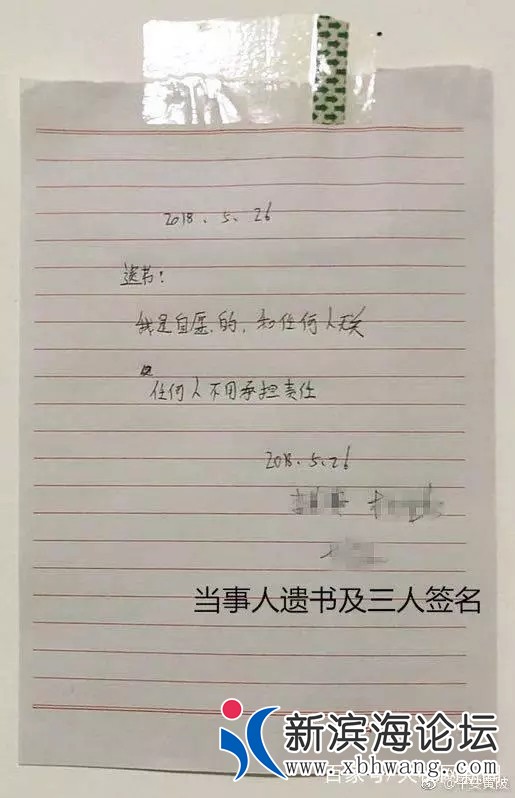 2018.5.26
遗书：
我是自愿的，和任何人无关
任何人不用承担责任
2018.5.26
当事人遗书及三人签名
新滨海论坛
www.xbhwang.com
@平安黄陂